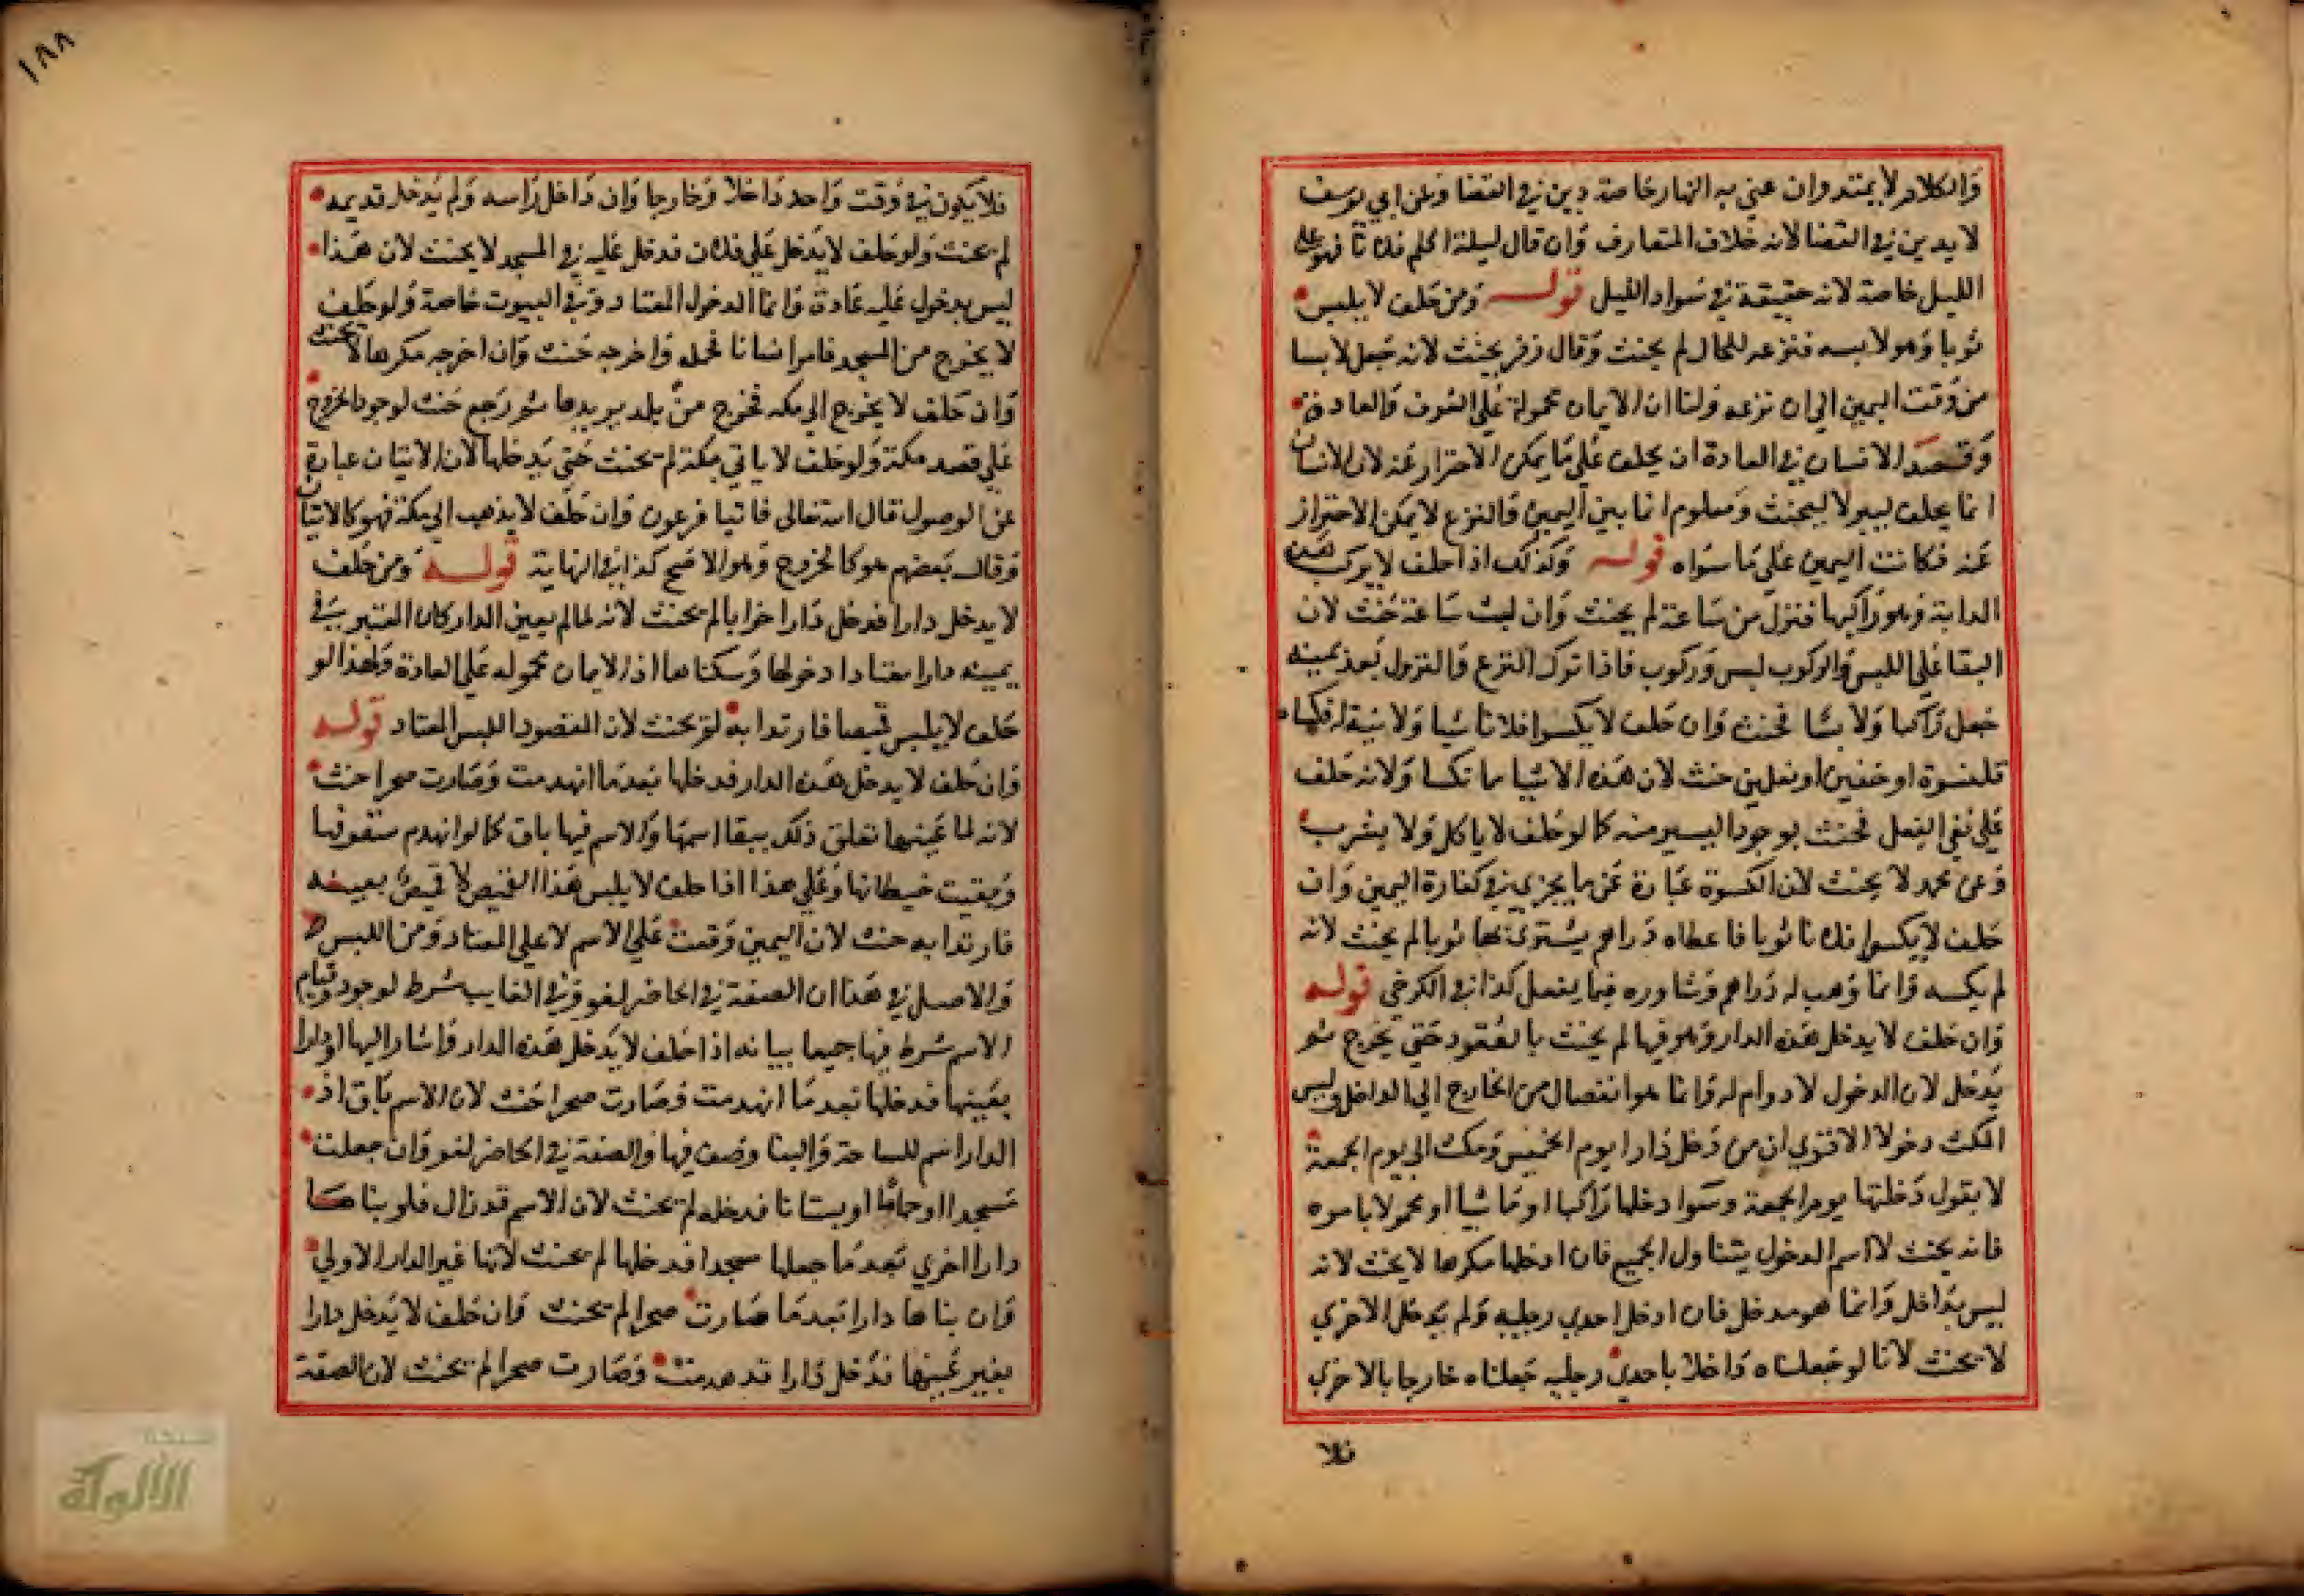 والكلام لا يمتد وان عني به النهار خاصة دين في القضا وعن ابي يوسف
لا يدين في القضا لانه خلاف المتعارف وان قال ليلة اكلم فلانا فهو علي
الليل خاصة لانه حقيقة في سواد الليل قوله ومن حلف لا يلبس
ثوبا وهو لابسه فنزعه للحال لم يحنث وقال زفر يحنث لانه جعل لابسا
من وقت اليمين الي ان نزعه ولنا ان الايمان محمولة علي العرف والعادة
وقصد الانسان في العادة ان يحلف علي ما يمكن الاحتراز عنه لان الانسان
انما يحلف ليبر لا ليحنث ومعلوم انما بين اليمين والنزع لا يمكن الاحتراز
عنه فكانت اليمين علي ما سواه قوله وكذلك اذا حلف لا يركب هذه
الدابة وهو راكبها فنزل من ساعته لم يحنث وان لبث ساعة حنث لان
البقا علي اللبس والركوب لبس وركوب فاذا ترك النزع والنزول بعد يمينه
جعل راكبا ولابسا فحنث وان حلف لا يكسوا فلانا شيا ولا نية له فكساه
قلنسوة او خفين او نعلين حنث لان هذه الاشيا مما تكسا ولانه حلف
علي نفي الفعل فحنث بوجود اليسير منه كما لو حلف لا ياكل ولا يشرب
وعن محمد لا يحنث لان الكسوة عبارة عن ما يجزي في كفارة اليمين وان
حلف لا يكسوا فلانا ثوبا فاعطاه دراهم يشتري بها ثوبا لم يحنث لانه
لم يكسه وانما وهب له دراهم وشاوره فيما يفعل كذا في الكرخي قوله
وان حلف لا يدخل هذه الدار وهو فيها لم يحنث بالقعود حتي يخرج ثم
يدخل لان الدخول لا دوام له وانما هو انفصال من الخارج الي الداخل وليس
المكث دخولا الا تري ان من دخل دارا يوم الخميس ومكث الي يوم الجمعة
لا يقول دخلتها يوم الجمعة وسوا دخلها راكبا او ماشيا او محمولا بامره
فانه يحنث لا اسم الدخول يتناول الجميع فان ادخلها مكرها لا يحنث لانه
ليس بداخل وانما هو مدخل فان ادخل احدي رجليه ولم يدخل الاخري
لا يحنث لانا لو جعلناه داخلا باحدي رجليه جعلناه خارجا بالاخري
فلا
١٨٨
فلا يكون في وقت واحد داخلا وخارجا وان داخل راسه ولم يدخل قديمه
لم يحنث ولو حلف لا يدخل علي فلان فدخل عليه في المسجد لا يحنث لان هذا
ليس بدخول عليه عادة وانما الدخول المعتاد في البيوت خاصة ولو حلف
لا يخرج من المسجد فامر انسانا فحمله واخرجه حنث وان اخرجه مكرها لا يحنث
وان حلف لا يخرج الي مكه فخرج من بلده يريدها ثم رجع حنث لوجود الخروج
علي قصد مكة ولو حلف لا ياتي مكة لم يحنث حتي يدخلها لان الاتيان عبارة
عن الوصول قال الله تعالي فاتيا فرعون وان حلف لا يذهب الي مكة فهو كالاتيان
وقال بعضهم هو كالخروج وهو الاصح كذا في النهاية قوله ومن حلف
لا يدخل دارا فدخل دارا خرابا لم يحنث لانه لما لم يعين الدار كان المعتبر في
يمينه دارا معتادا دخولها وسكناها اذ الايمان محموله علي العادة ولهذا لو
حلف لا يلبس قميصا فارتدا به لم يحنث لان المقصود اللبس المعتاد قوله
وان حلف لا يدخل هذه الدار فدخلها بعدما انهدمت وصارت صحرا حنث
لانه لما عينها تعلق ذلك ببقا اسمها والاسم فيها باق كما لو انهدم سقوفها
وبقيت حيطانها وعلي هذا اذا حلف لا يلبس هذا القميص لا قميص بعينه
فارتدا به حنث لان اليمين وقعت علي الاسم لا علي المعتاد ومن اللبس
والاصل في هذا ان الصفة في الحاضر لغو وفي الغايب شرط لوجود وقيام
الاسم شرط فيها جميعا بيانه اذا حلف لا يدخل هذه الدار واشار اليها او دارا
بعينها فدخلها بعدما انهدمت وصارت صحرا حنث لان الاسم باق اذ
الدار اسم للساحة والبنا وصف فيها والصفة في الحاضر لغو وان جعلت
مسجدا او حماما او بستانا فدخله لم يحنث لان الاسم قد زال فلو بناها
دارا اخري بعدما جعلها مسجدا فدخلها لم يحنث لانها غير الدار الاولي
وان بناها دارا بعدما صارت صحرا لم يحنث وان حلف لا يدخل دارا
بغير عينها فدخل دارا قد هدمت وصارت صحرا لم يحنث لان الصفة
شبكة
الألوكة